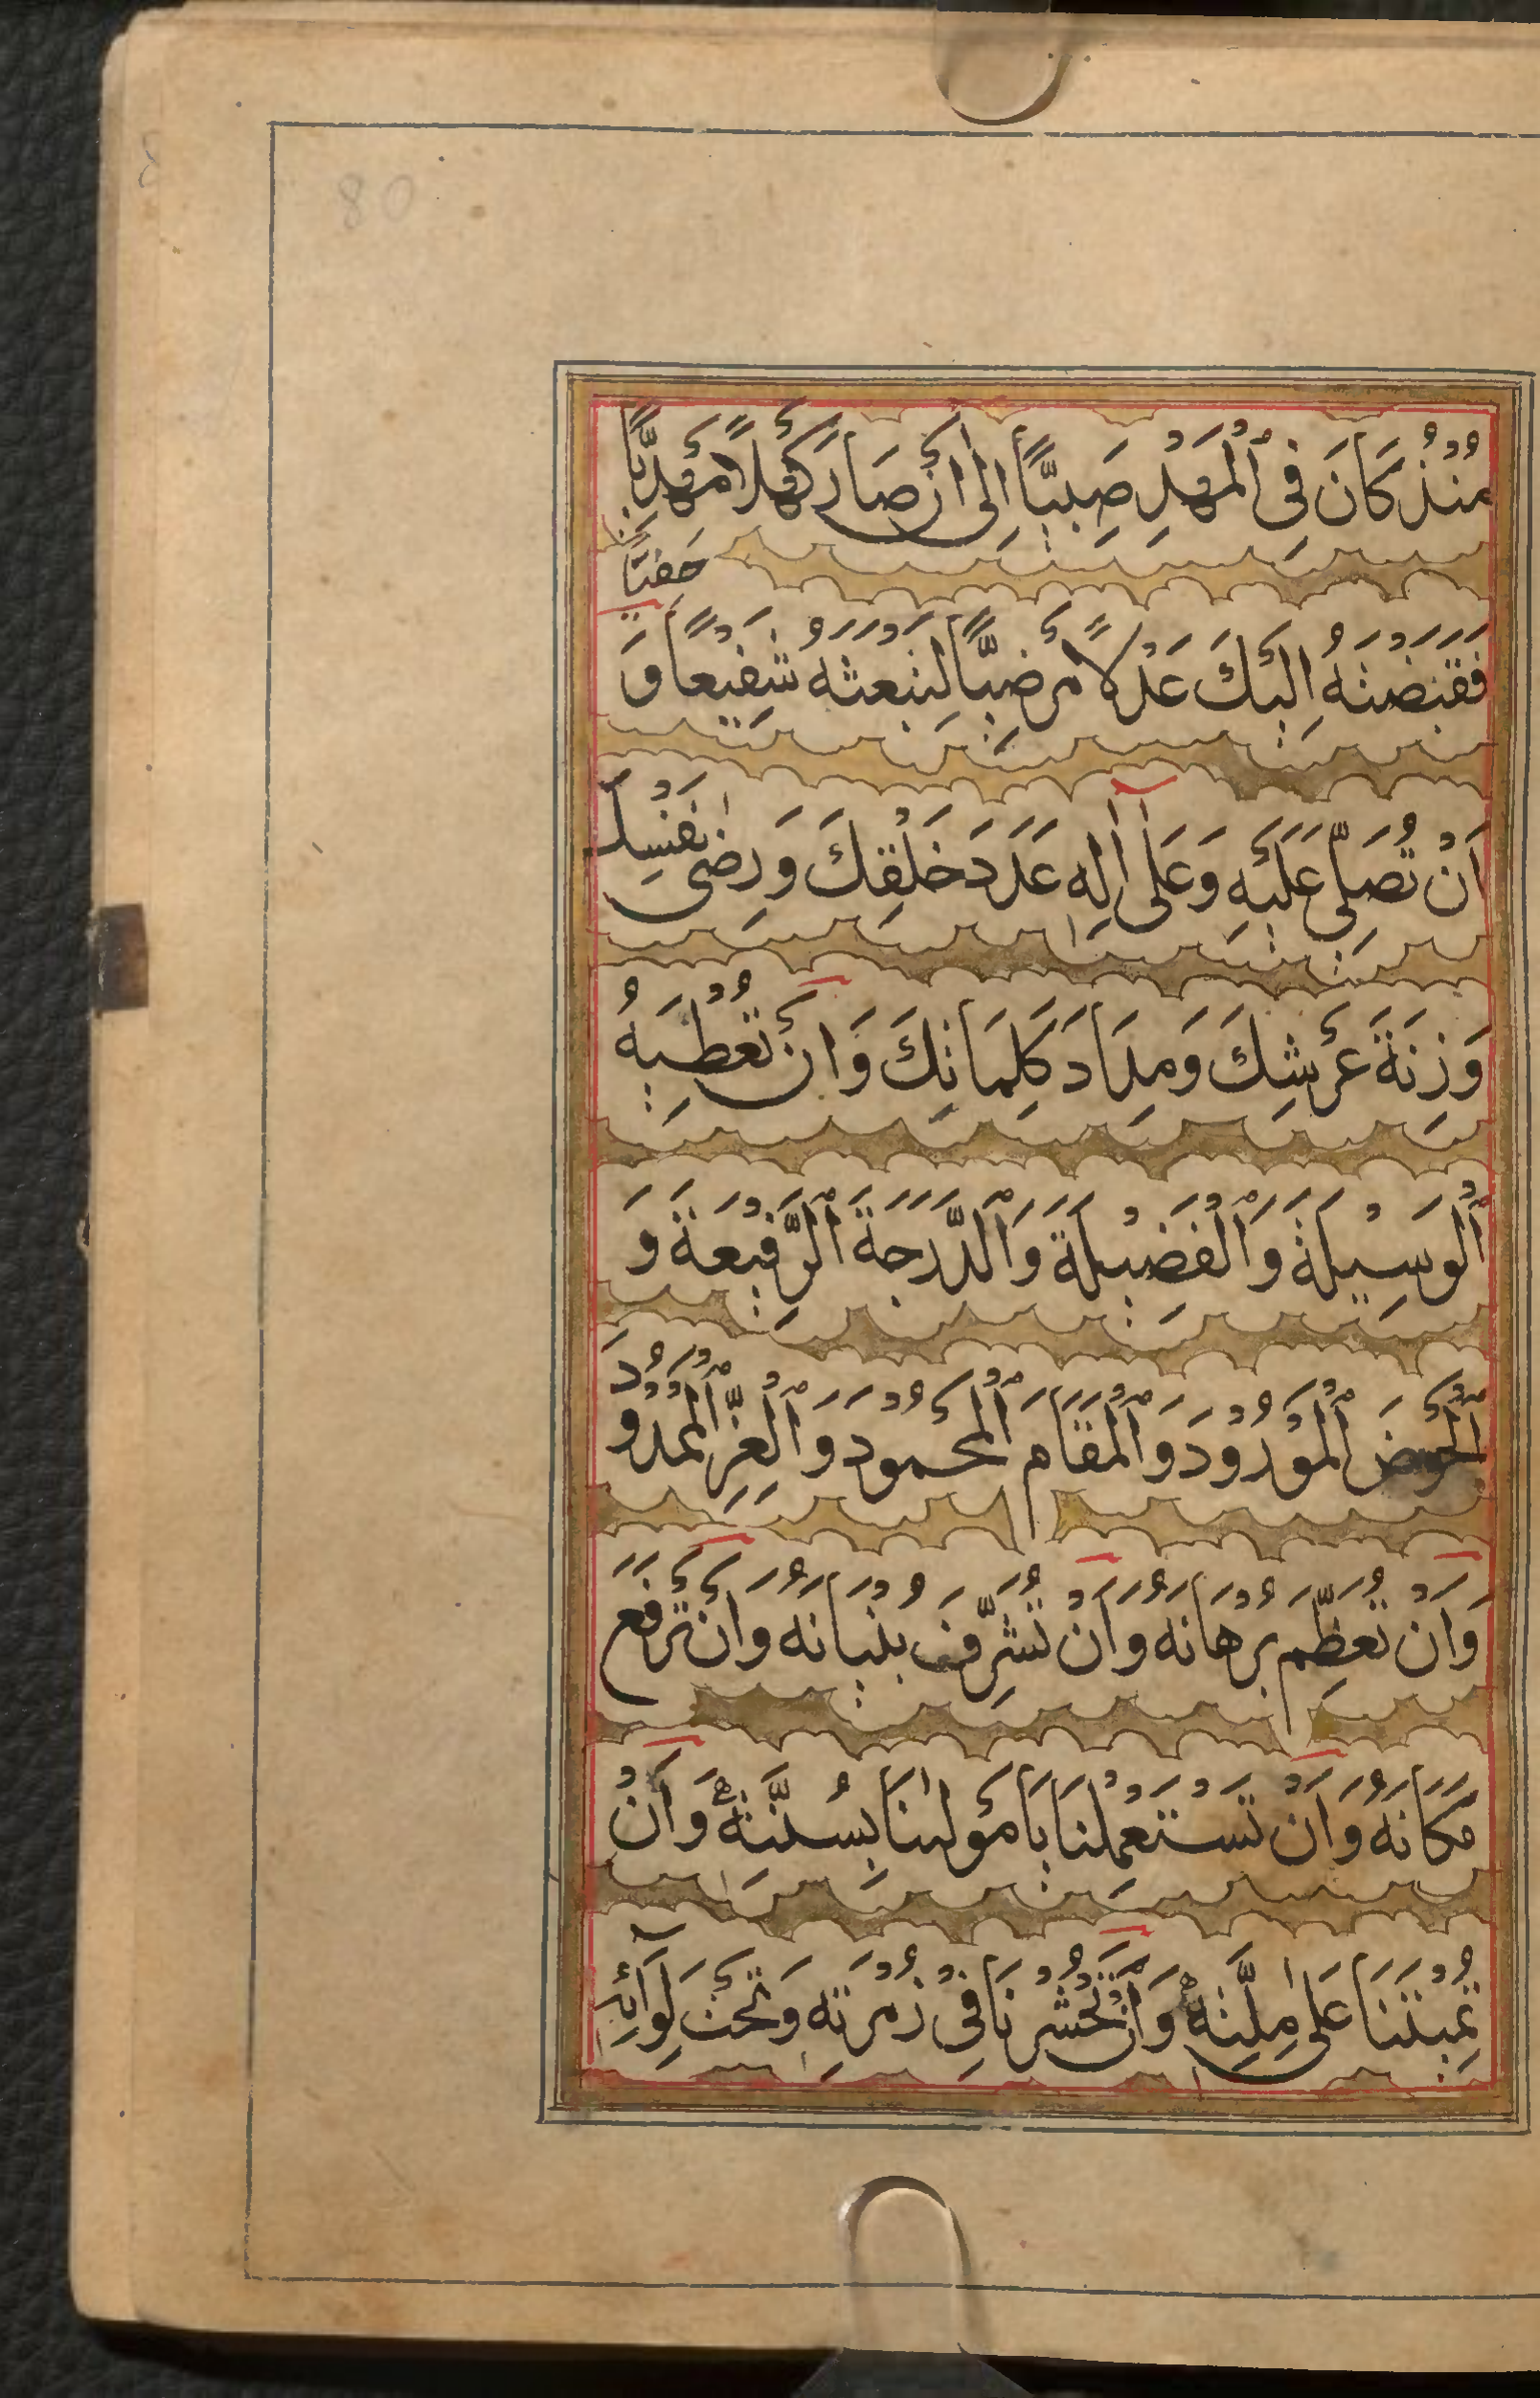 80
مُنْذُ كَانَ فِي ٱلْمَهْدِ صَبِيًّا اِلٰى اَنْ صَارَ كَهْلًا مَهْدِيًّا
فَقَبَضْتَهُ اِلَيْكَ عَدْلًا مَرْضِيًّا لِتَبْعَثَهُ شَفِيْعًا وَ
اَنْ تُصَلِّيَ عَلَيْهِ وَعَلٰٓى اٰلِهٖ عَدَدَ خَلْقِكَ وَرِضٰى نَفْسِكَ
وَزِنَةَ عَرْشِكَ وَمِدَادَ كَلِمَاتِكَ وَاَنْ تُعْطِيَهُ
ٱلْوَسِيْلَةَ وَٱلْفَضِيْلَةَ وَٱلدَّرَجَةَ ٱلرَّفِيْعَةَ وَ
ٱلْحَوْضَ ٱلْمَوْرُوْدَ وَٱلْمَقَامَ ٱلْمَحْمُوْدَ وَٱلْعِزَّ ٱلْمَمْدُوْدَ
وَاَنْ تُعَظِّمَ بُرْهَانَهُ وَاَنْ تُشَرِّفَ بُنْيَانَهُ وَاَنْ تَرْفَعَ
مَكَانَهُ وَاَنْ تَسْتَعْمِلَنَا يَا مَوْلٰىنَا بِسُنَّتِهٖ وَاَنْ
تُمِيْتَنَا عَلٰى مِلَّتِهٖ وَاَنْ تَحْشُرَنَا فِيْ زُمْرَتِهٖ وَتَحْتَ لِوَآئِهٖ